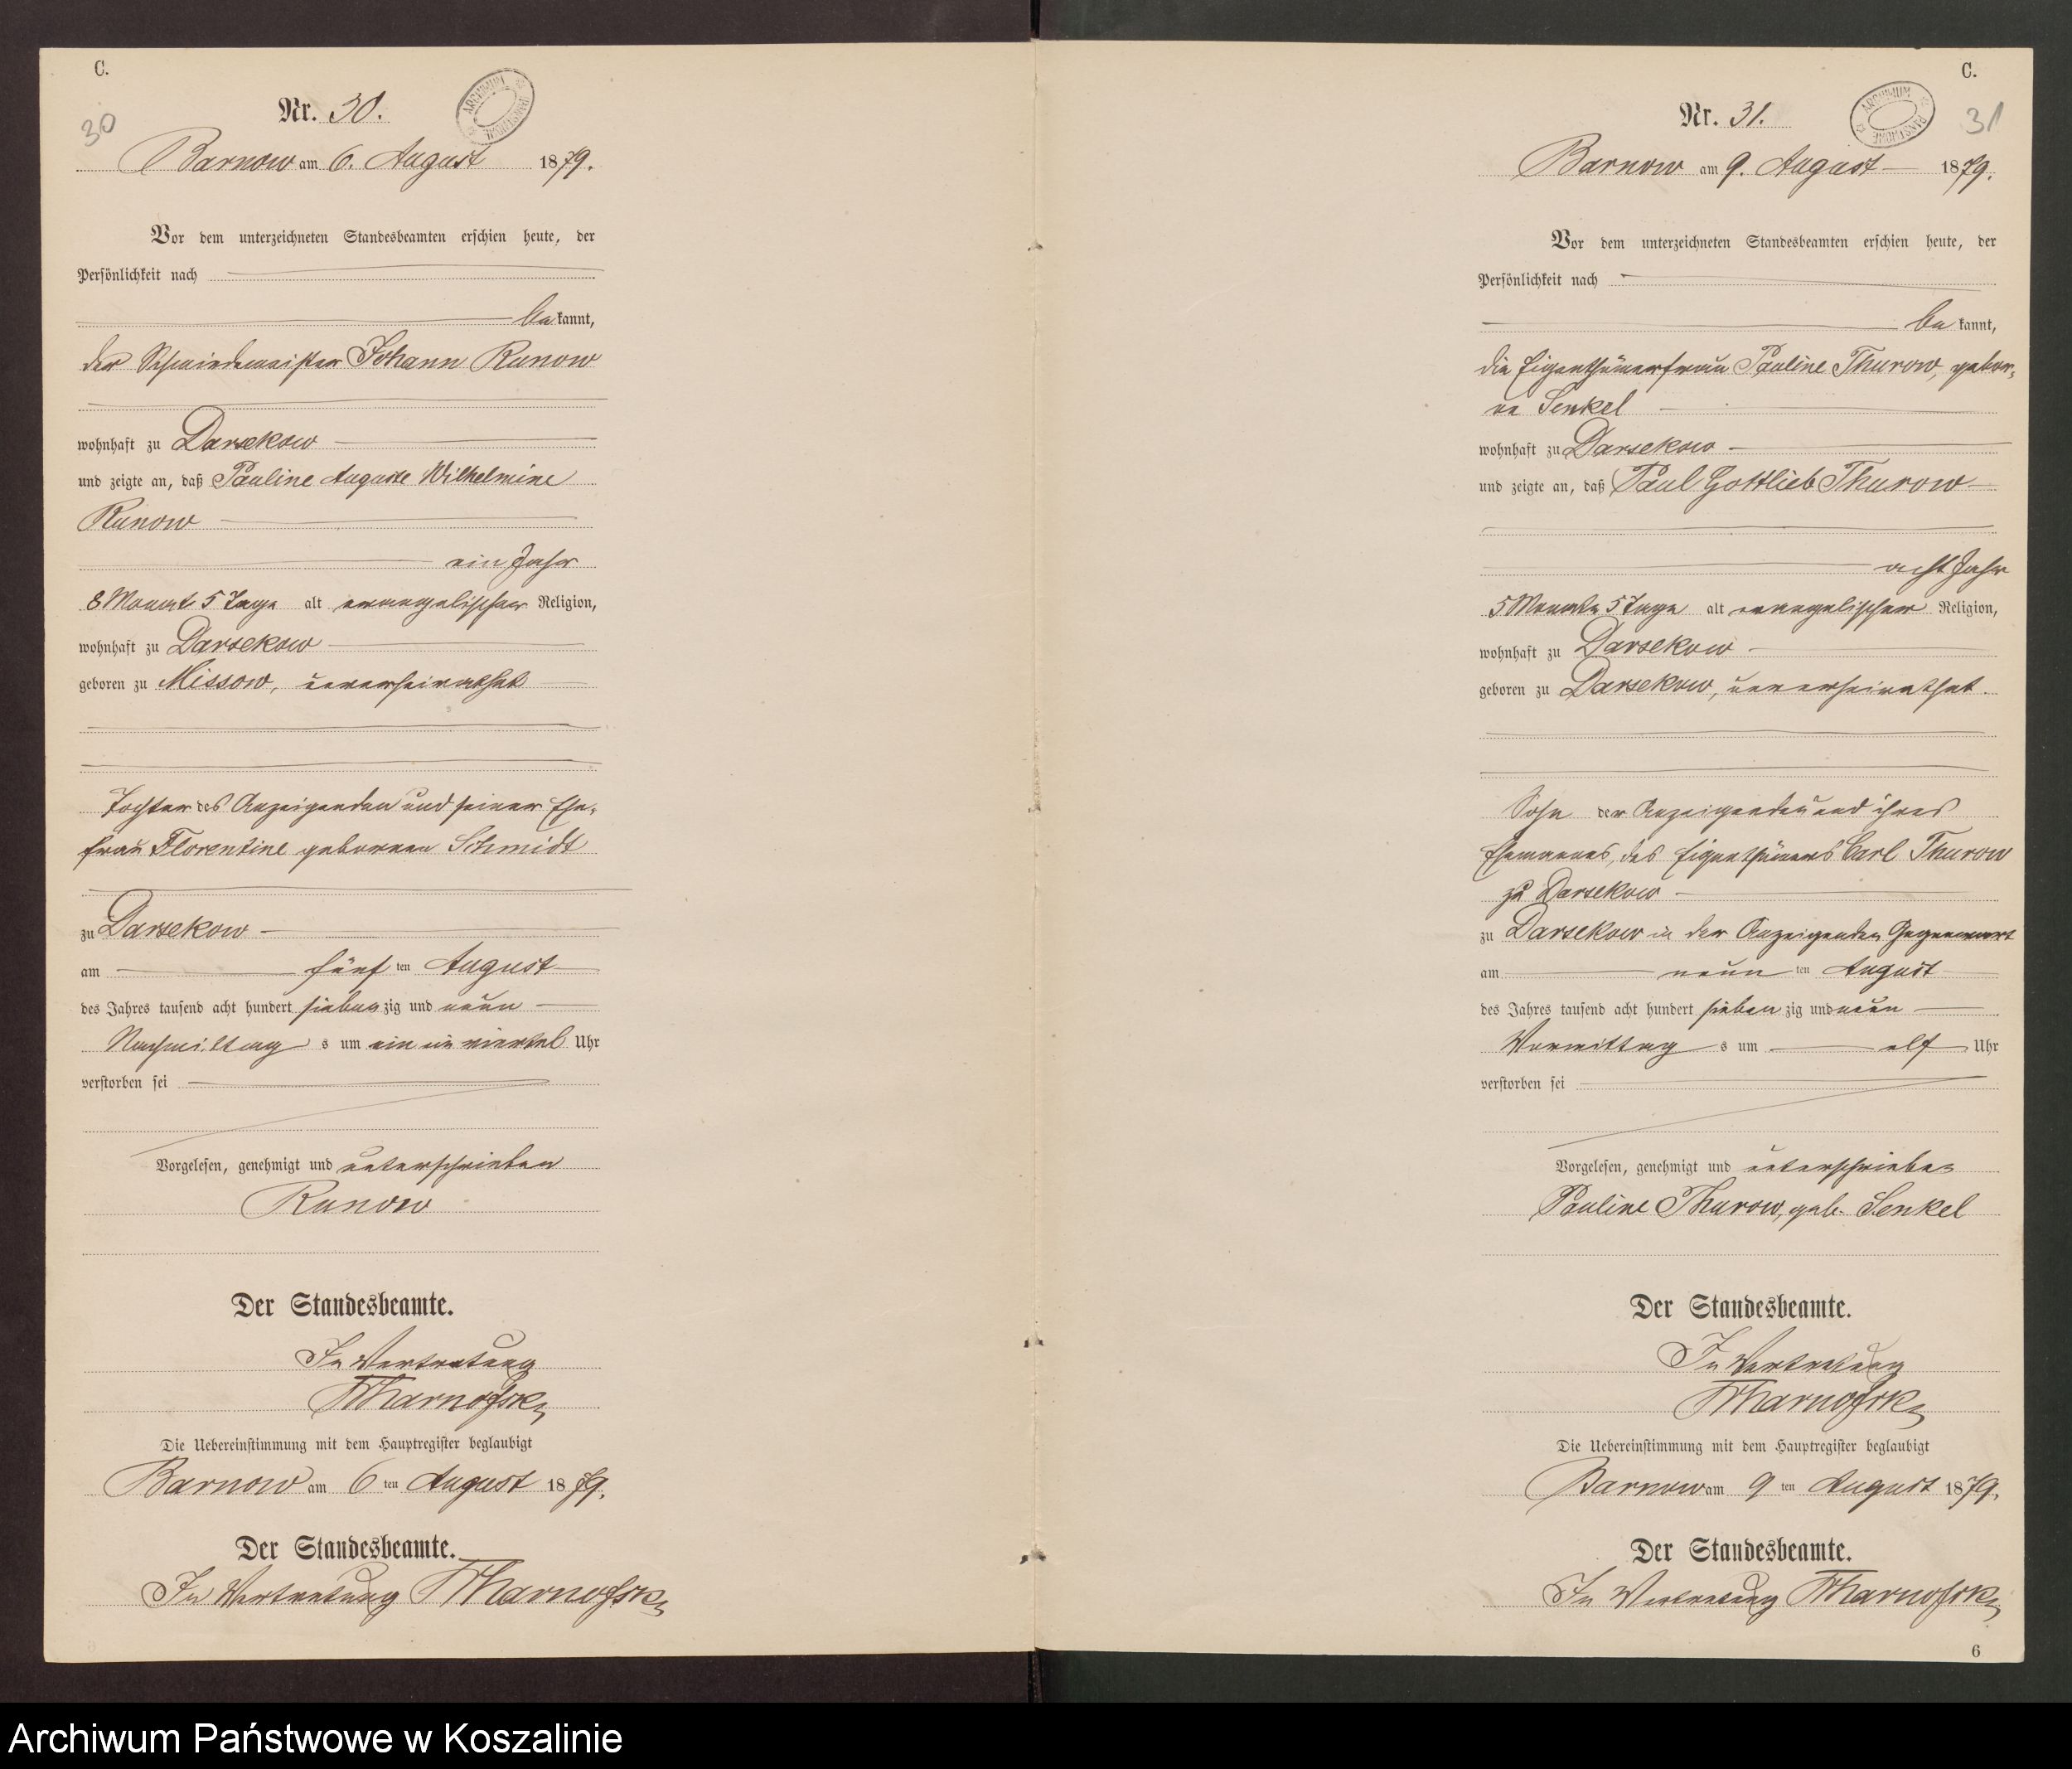 C.
30
Nr. 30.
ARCHIWUM PAŃSTWOWE
Barnow am 6. August 1879.
Vor dem unterzeichneten Standesbeamten erschien heute, der
Persönlichkeit nach
bekannt,
der Schmiedemeister Johann Runow
wohnhaft zu Darsekow
und zeigte an, daß Pauline Auguste Wilhelmine
Runow
ein Jahr
8 Monat 5 Tage alt evangelischer Religion,
wohnhaft zu Darsekow
geboren zu Missow, unverheirathet
Tochter des Anzeigenden und seiner Ehe-
frau Florentine geborenen Schmidt
zu Darsekow
am fünften August
des Jahres tausend acht hundert siebenzig und neun
Nachmittags um ein viertel Uhr
verstorben sei
Vorgelesen, genehmigt und unterschrieben
Runow
Der Standesbeamte.
In Vertretung
Die Uebereinstimmung mit dem Hauptregister beglaubigt
Barnow am 6ten August 1879.
Der Standesbeamte.
In Vertretung
C.
31
Nr. 31.
ARCHIWUM PAŃSTWOWE
Barnow am 9. August 1879.
Vor dem unterzeichneten Standesbeamten erschien heute, der
Persönlichkeit nach
bekannt,
die Eigenthümerfrau Pauline Thurow, gebor-
ne Senkel
wohnhaft zu Darsekow
und zeigte an, daß Paul Gottlieb Thurow
acht Jahr
5 Monate 5 Tage alt evangelischer Religion,
wohnhaft zu Darsekow
geboren zu Darsekow, unverheirathet.
Sohn der Anzeigenden und ihres
Ehemannes, des Eigenthümers Carl Thurow
zu Darsekow
zu Darsekow in der Anzeigenden Gegenwart
am neunten August
des Jahres tausend acht hundert siebenzig und neun
Vormittags um elf Uhr
verstorben sei
Vorgelesen, genehmigt und unterschrieben
Pauline Thurow, geb. Senkel
Der Standesbeamte.
In Vertretung
Die Uebereinstimmung mit dem Hauptregister beglaubigt
Barnow am 9ten August 1879.
Der Standesbeamte.
In Vertretung
6
Archiwum Państwowe w Koszalinie